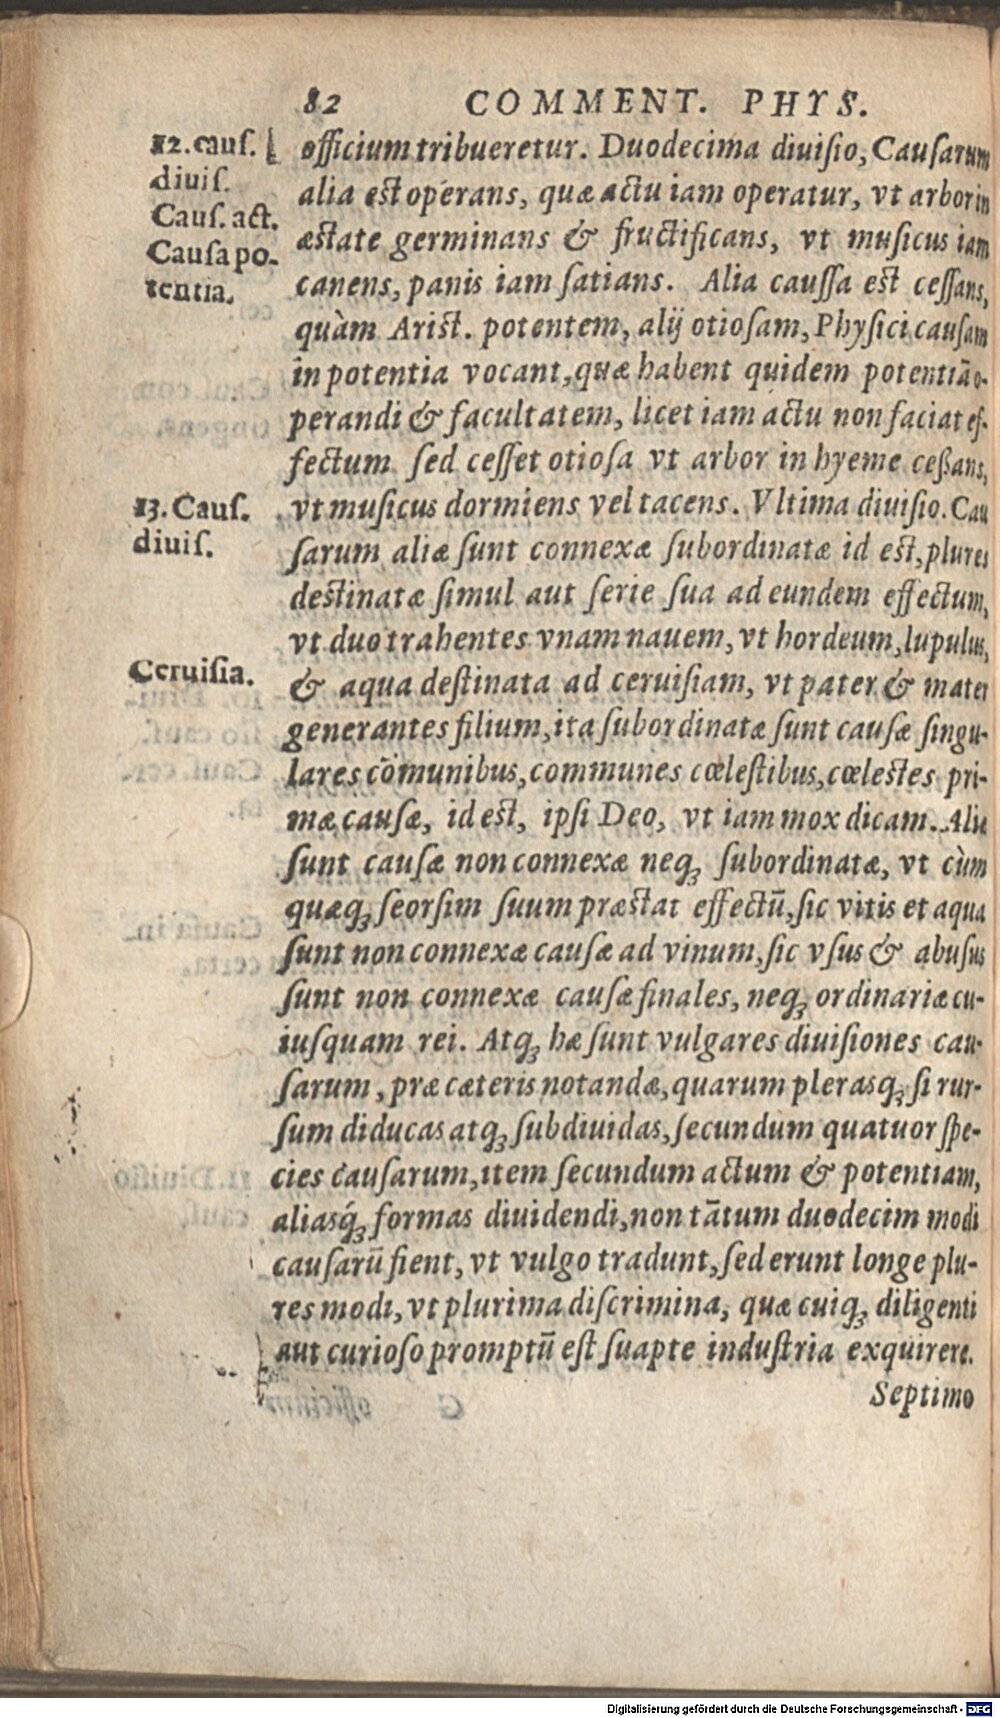 82 COMMENT. PHYS.
12. caus.
diuis.
Caus. act.
Causa po-
tentia.
officium tribueretur. Duodecima diuisio, Causarum
alia est operans, quæ actu iam operatur, vt arbor in
æstate germinans & fructificans, vt musicus iam
canens, panis iam satians. Alia caussa est cessans,
quàm Arist. potentem, alij otiosam, Physici causam
in potentia vocant, quæ habent quidem potentiā o-
perandi & facultatem, licet iam actu non faciat ef-
fectum sed cesset otiosa vt arbor in hyeme ceßans,
13. Caus.
diuis.
vt musicus dormiens vel tacens. Vltima diuisio. Cau
sarum aliæ sunt connexæ subordinatæ id est, plures
destinatæ simul aut serie sua ad eundem effectum,
vt duo trahentes vnam nauem, vt hordeum, lupulus,
Ceruisia.
& aqua destinata ad ceruisiam, vt pater & mater
generantes filium, ita subordinatæ sunt causæ singu-
lares cōmunibus, communes cœlestibus, cœlestes pri-
mæ causæ, id est, ipsi Deo, vt iam mox dicam. Aliæ
sunt causæ non connexæ neqꝫ subordinatæ, vt cùm
quæqꝫ seorsim suum præstat effectū, sic vitis et aqua
sunt non connexæ causæ ad vinum, sic vsus & abusus
sunt non connexæ causæ finales, neqꝫ ordinariæ cu-
iusquam rei. Atqꝫ hæ sunt vulgares diuisiones cau-
sarum, præ cæteris notandæ, quarum plerasqꝫ si rur-
sum diducas atqꝫ subdiuidas, secundum quatuor spe-
cies causarum, item secundum actum & potentiam,
aliasqꝫ́ formas diuidendi, non tātum duodecim modi
causarū fient, vt vulgo tradunt, sed erunt longe plu-
res modi, vt plurima discrimina, quæ cuiqꝫ diligenti
aut curioso promptū est suapte industria exquirere.
Septimo
Digitalisierung gefördert durch die Deutsche Forschungsgemeinschaft - DFG